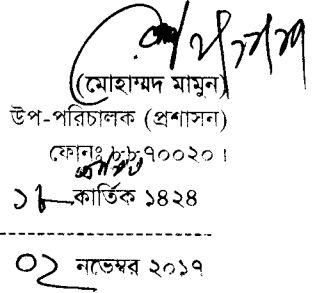 (মোহাম্মদ মামুন)
উপ-পরিচালক (প্রশাসন)
ফোনঃ ৮৮৭০০২০।
১৮ কার্তিক ১৪২৪
০২ নভেম্বর ২০১৭